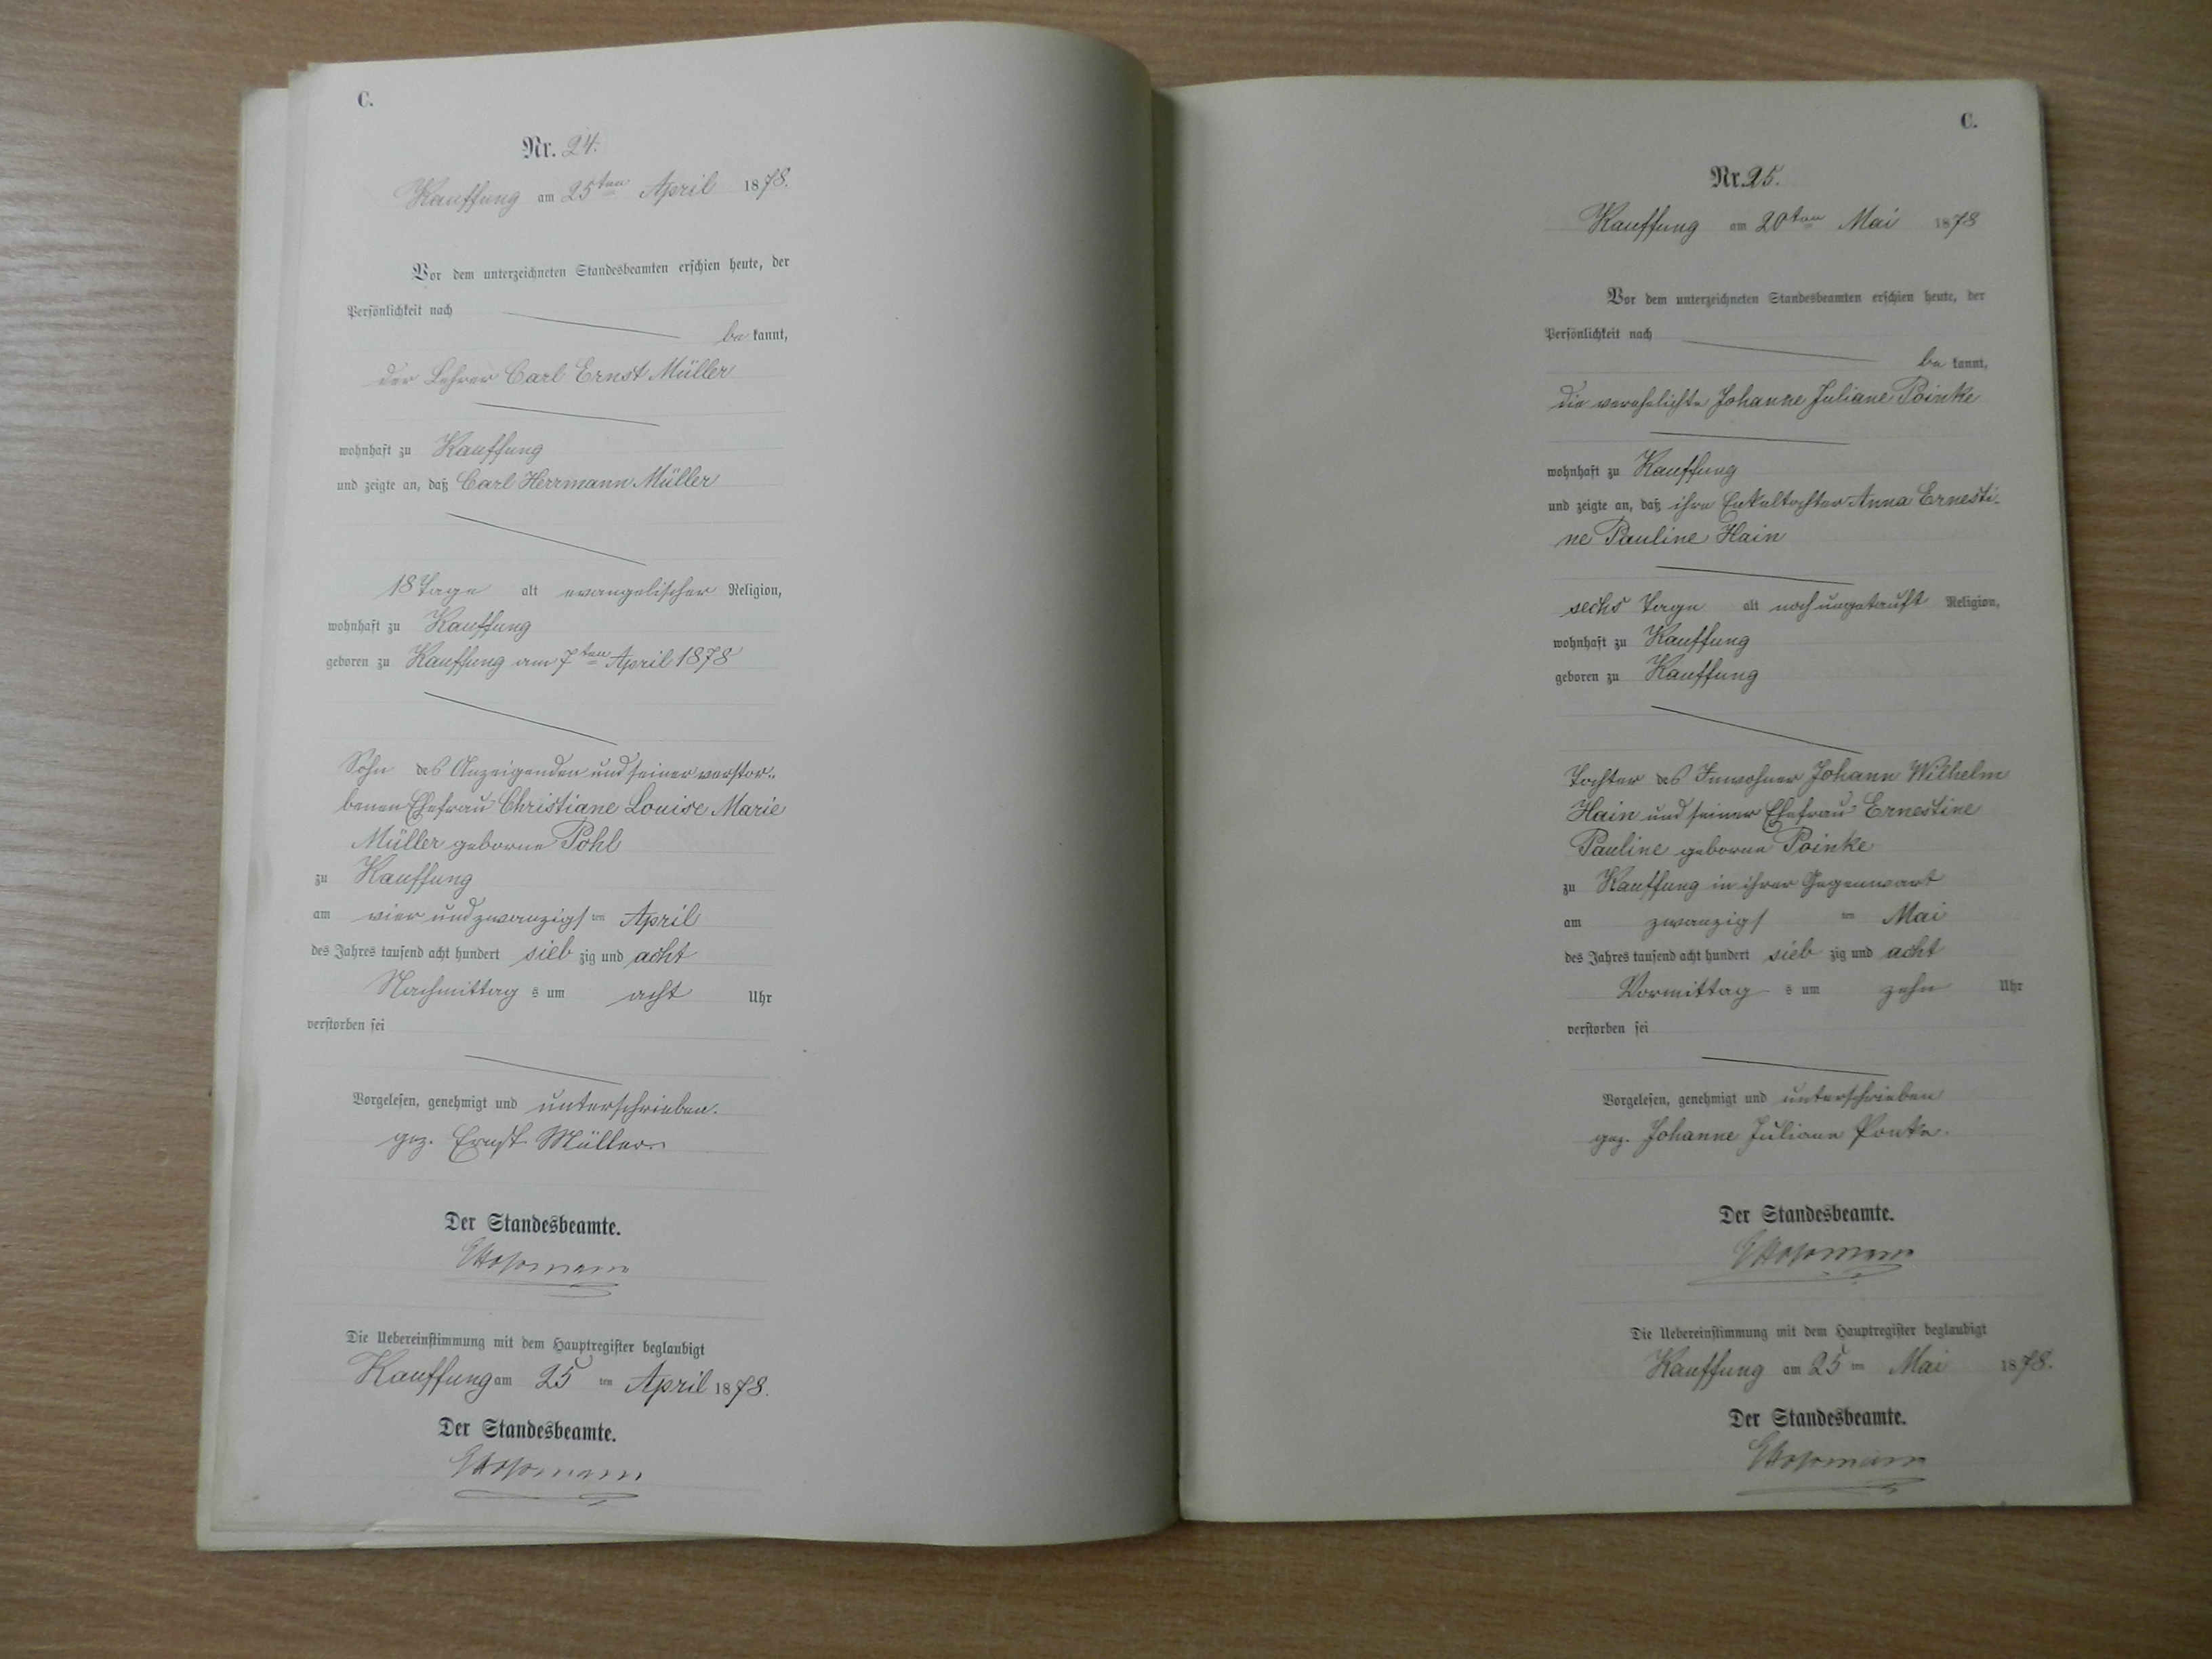 C.
Nr. 24.
Kauffung am 25ten April 1878.
Vor dem unterzeichneten Standesbeamten erschien heute, der
Persönlichkeit nach
be kannt,
der Lehrer Carl Ernst Müller
wohnhaft zu Kauffung
und zeigte an, daß Carl Herrmann Müller
18 Tage alt evangelischer Religion,
wohnhaft zu Kauffung
geboren zu Kauffung am 7ten April 1878
Sohn des Anzeigenden und seiner verstor-
benen Ehefrau Christiane Louise Marie
Müller geborne Pohl
zu Kauffung
am vier und zwanzigs ten April
des Jahres tausend acht hundert sieb zig und acht
Nachmittag s um acht Uhr
verstorben sei
Vorgelesen, genehmigt und unterschrieben.
gez. Ernst Müller
Der Standesbeamte.
Die Uebereinstimmung mit dem Hauptregister beglaubigt
Kauffung am 25 ten April 1878.
Der Standesbeamte.
C.
Nr. 25.
Kauffung am 20ten Mai 1878
Vor dem unterzeichneten Standesbeamten erschien heute, der
Persönlichkeit nach
be kannt,
die verehelichte Johanne Juliane Poinke
wohnhaft zu Kauffung
und zeigte an, daß ihre Enkeltochter Anna Ernesti-
ne Pauline Hain
sechs Tage alt noch ungetauft Religion,
wohnhaft zu Kauffung
geboren zu Kauffung
Tochter des Inwohner Johann Wilhelm
Hain und seiner Ehefrau Ernestine
Pauline geborne Poinke
zu Kauffung in ihrer Gegenwart
am zwanzigs ten Mai
des Jahres tausend acht hundert sieb zig und acht
Vormittag s um zehn Uhr
verstorben sei
Vorgelesen, genehmigt und unterschrieben
gez. Johanne Juliane Ponke.
Der Standesbeamte.
Die Uebereinstimmung mit dem Hauptregister beglaubigt
Kauffung am 25 ten Mai 1878.
Der Standesbeamte.